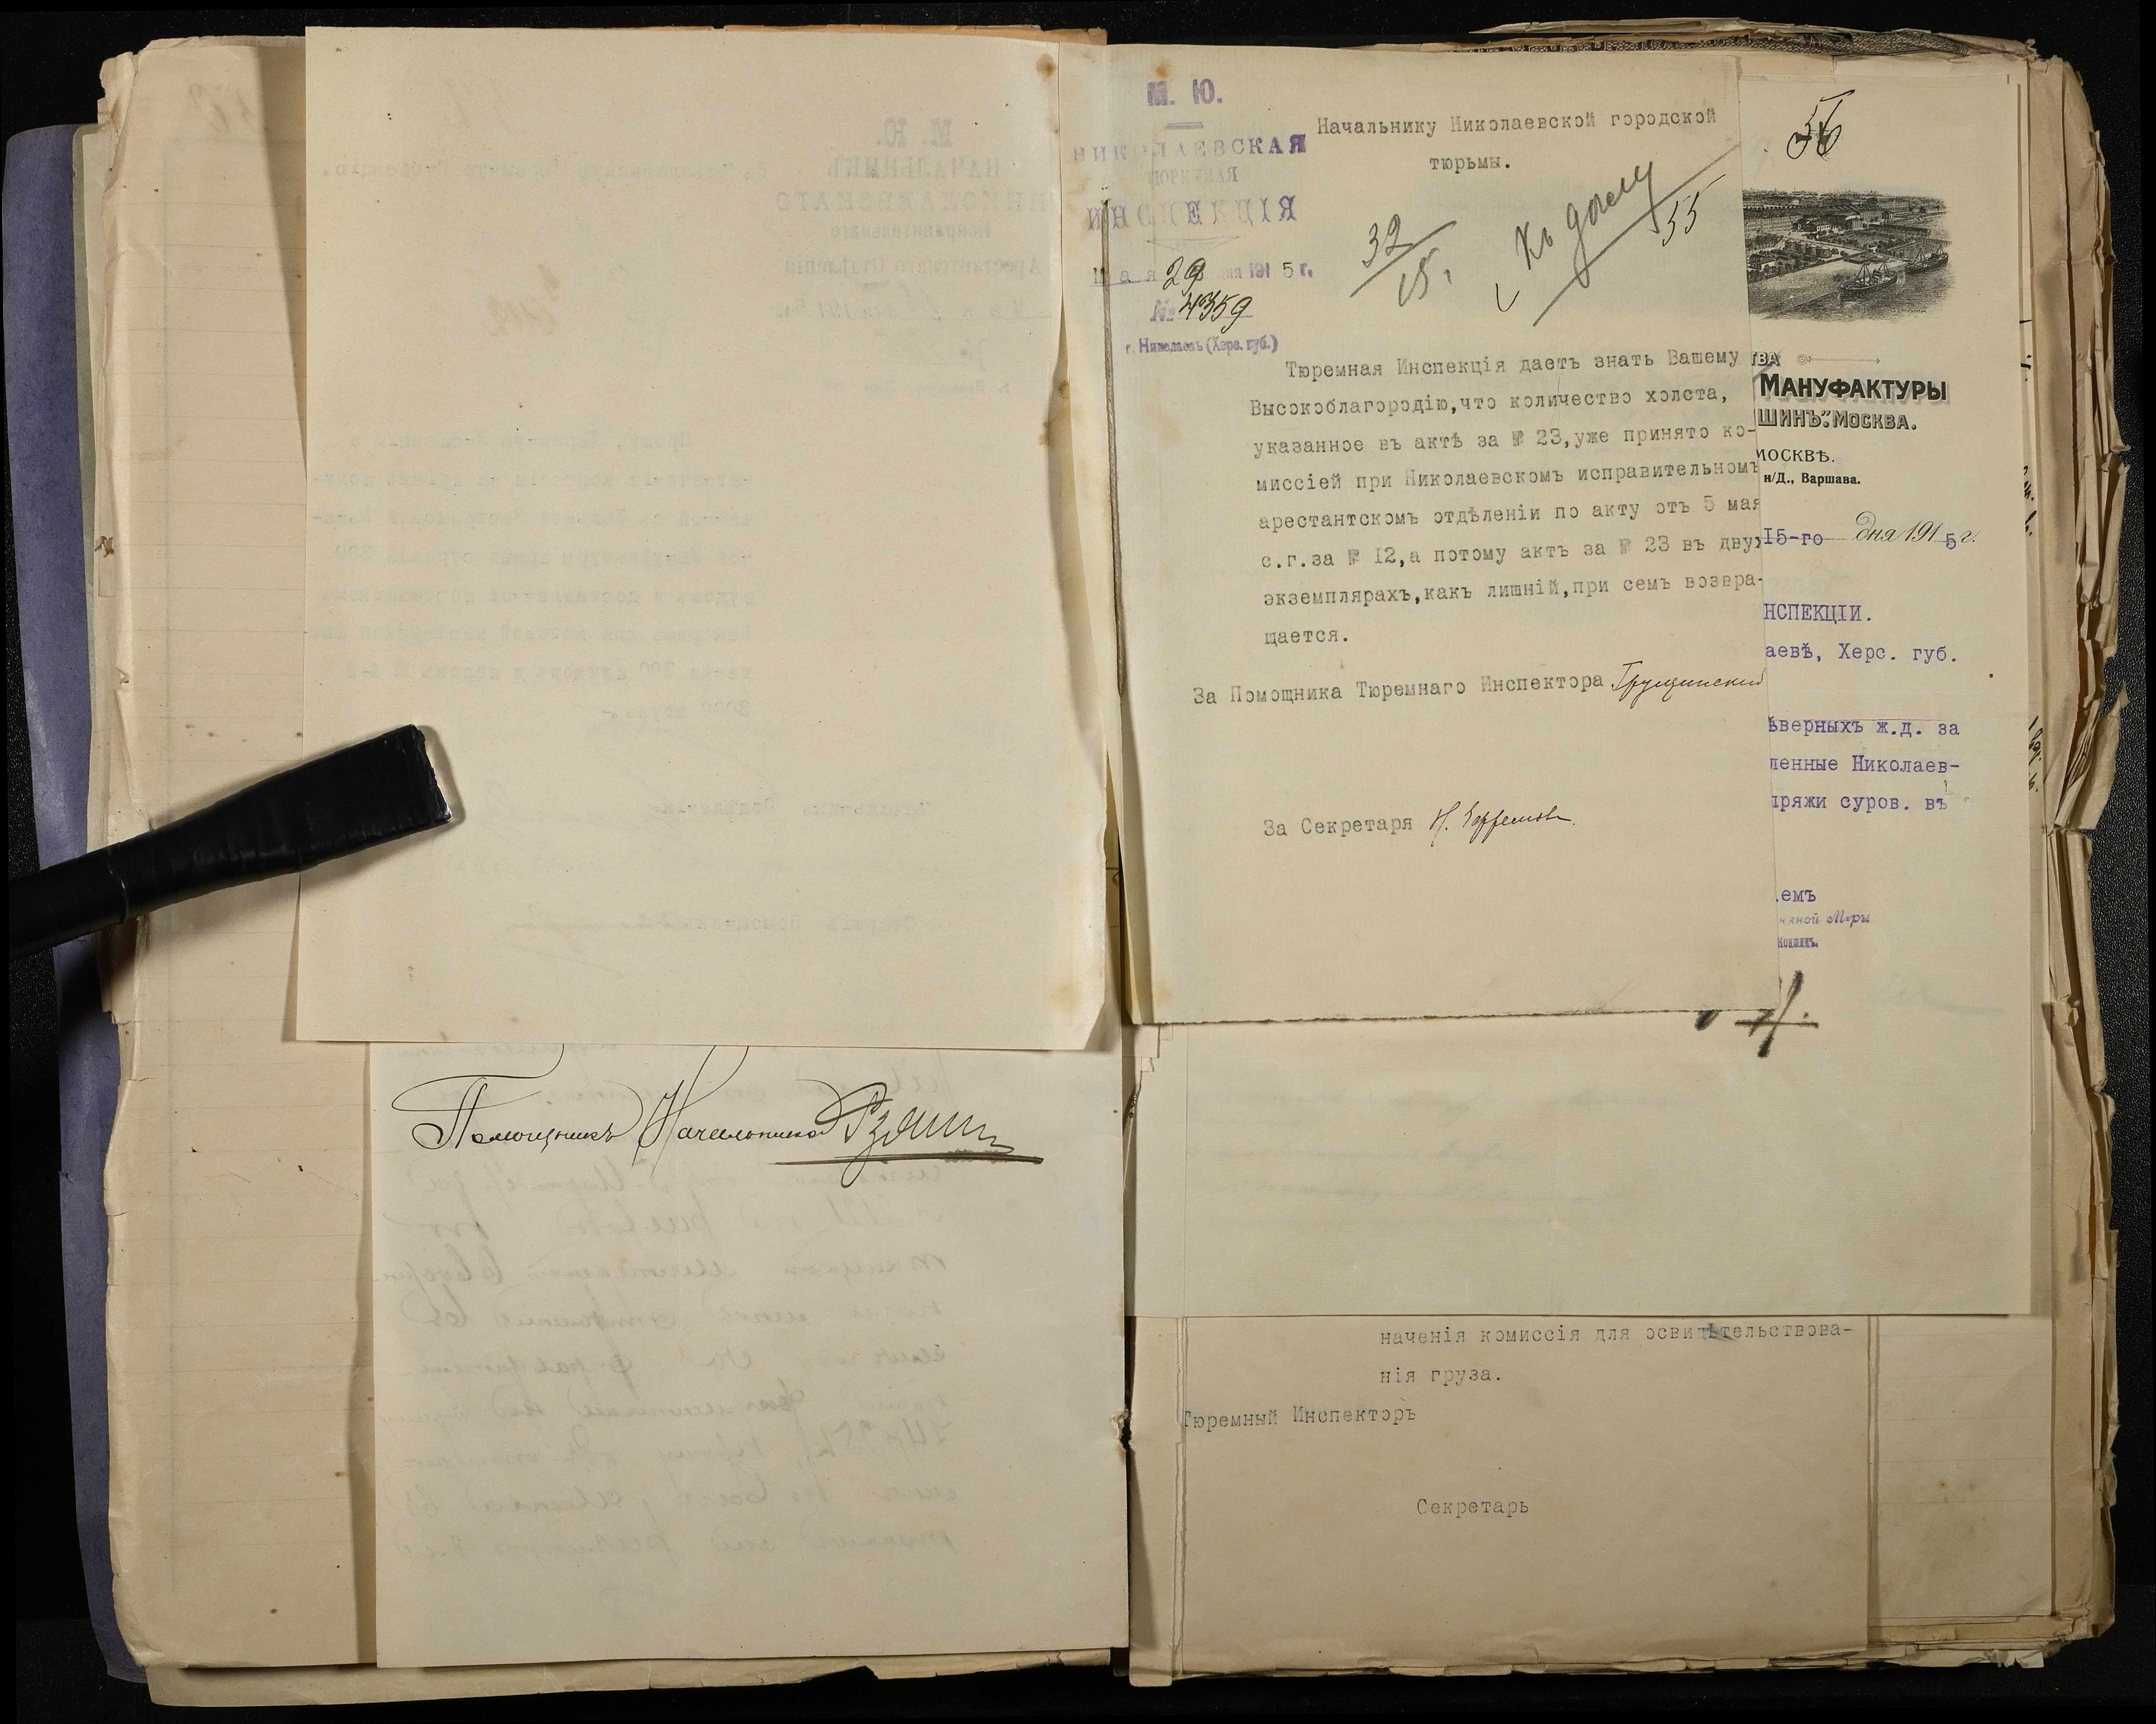 Помощникъ Начальника
М. Ю.
НИКОЛАЕВСКАЯ
ТЮРЕМНАЯ
ИНСПЕКЦІЯ
Мая 29 дня 1915 г.
№ 4359
г. Николаевъ (Херс. губ.)
Начальнику Николаевской городской
тюрьмы.
32/15.
Къ дѣлу
55
Тюремная Инспекція даетъ знать Вашему
Высокоблагородію,что количество холста,
указанное въ актѣ за № 23,уже принято ко-
миссіей при Николаевскомъ исправительномъ
арестантскомъ отдѣленіи по акту отъ 5 мая
с.г.за № 12,а потому актъ за № 23 въ двух
экземплярахъ,какъ лишній,при семъ возвра-
щается.
За Помощника Тюремнаго Инспектора Грущинскій
За Секретаря
56
ТВА
МАНУФАКТУРЫ
ШИНЪ". МОСКВА.
МОСКВѢ.
н/Д., Варшава.
15-го дня 1915 г.
НСПЕКЦІИ.
аевѣ, Херс. губ.
ѣверныхъ ж.д. за
ленные Николаев-
пряжи суров. въ
емъ
няной М-ры
наченія комиссія для освидѣтельствова-
нія груза.
Тюремный Инспекторъ
Секретарь